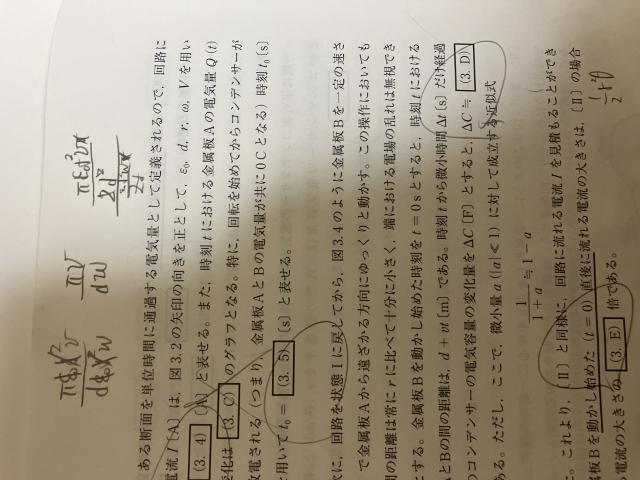 ある断面を単位時間に通過する電気量として定義されるので，回路に
電流 I〔A〕は，図3.2の矢印の向きを正として，ε₀，d，r，ω，V を用い
(3.4)〔A〕と表せる。また，時刻 t における金属板Aの電気量 Q(t)
変化は (3.C) のグラフとなる。特に，回転を始めてからコンデンサーが
放電される（つまり，金属板AとBの電気量が共に0Cとなる）時刻 t₀〔s〕
用いて t₀= (3.5)〔s〕と表せる。
に，回路を状態Ⅰに戻してから，図3.4のように金属板Bを一定の速さ
で金属板Aから遠ざかる方向にゆっくりと動かす。この操作においても
間の距離は常に r に比べて十分に小さく，端における電場の乱れは無視でき
とする。金属板Bを動かし始めた時刻を t=0s とすると，時刻 t における
AとBの間の距離は，d+vt〔m〕である。時刻 t から微小時間 Δt〔s〕だけ経過
のコンデンサーの電気容量の変化量を ΔC〔F〕とすると，ΔC≒ (3.D)
ある。ただし，ここで，微小量 a（|a|≪1）に対して成立する近似式
1/(1+a)≒1−a
これより，〔Ⅱ〕と同様に，回路に流れる電流 I を見積もることができ
属板Bを動かし始めた（t=0）直後に流れる電流の大きさは，〔Ⅱ〕の場合
る電流の大きさの (3.E) 倍である。